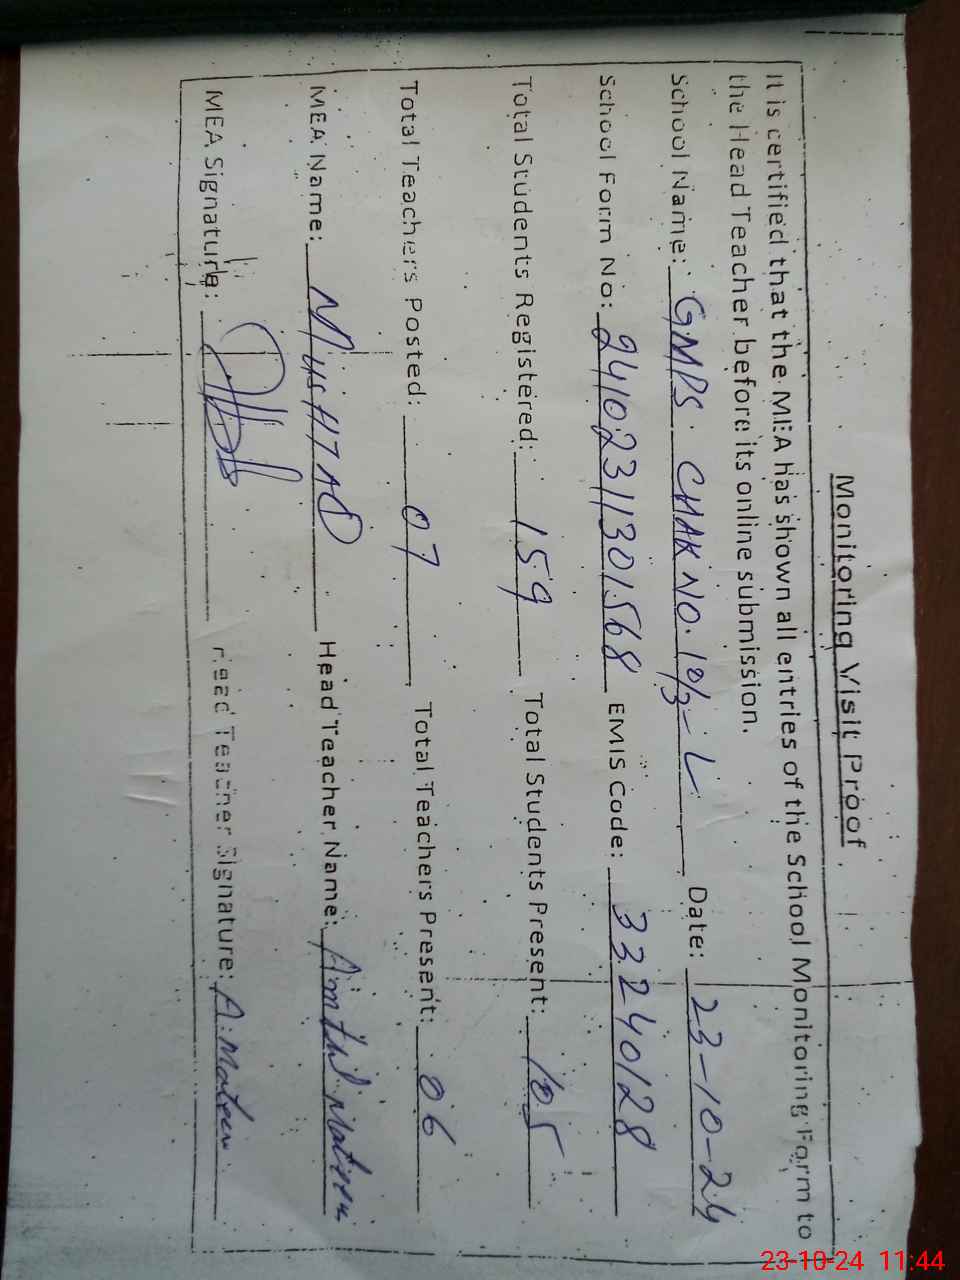 Monitoring Visit Proof
It is certified that the MEA has shown all entries of the School Monitoring Form to
the Head Teacher before its online submission.
School Name: GMPS CHAK NO. 10/3-L Date: 23-10-24
School Form No: 24102311301568 EMIS Code: 33240128
Total Students Registered: 159 Total Students Present: 105
Total Teachers Posted: 07 Total Teachers Present: 06
MEA Name: MUSHTAQ Head Teacher Name: Amtul Mateen
MEA Signature: Head Teacher Signature: A.Mateen
23-10-24 11:44